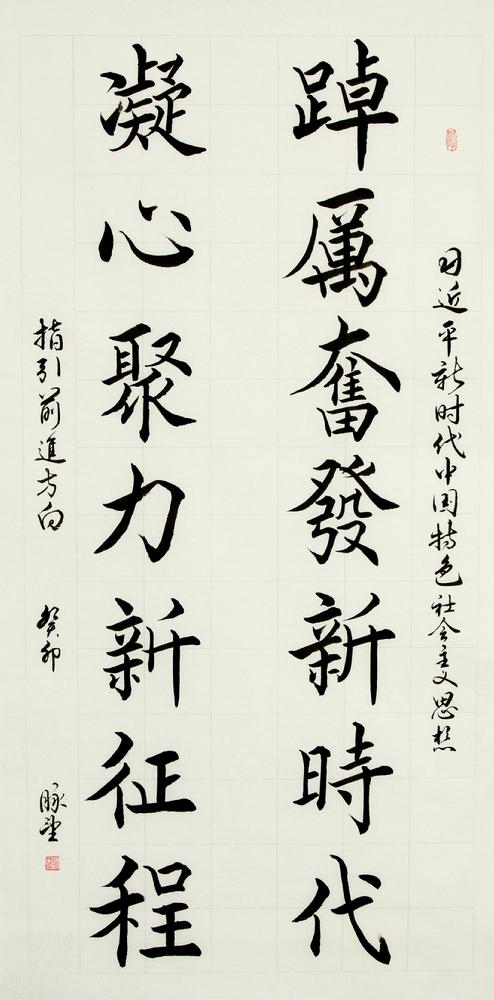 习近平新时代中国特色社会主义思想
踔厲奮發新時代
凝心聚力新征程
指引前進方向
癸卯